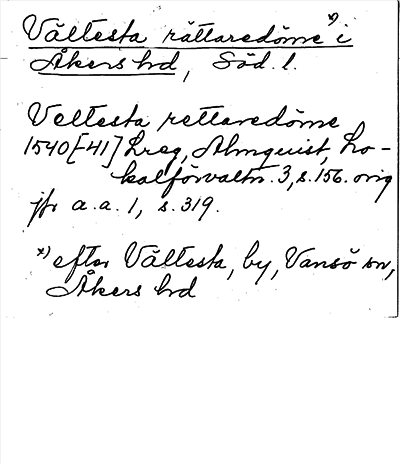 Vältesta rättaredöme *) i
Åkers hd, Söd. l.
Veltesta rettaredöme
1540[-41] Lreg, Almquist, Lo-
kalförvaltn. 3, s. 156. orig
jfr a.a. 1, s. 319.
*) efter Vältesta, by, Vansö sn,
Åkers hd